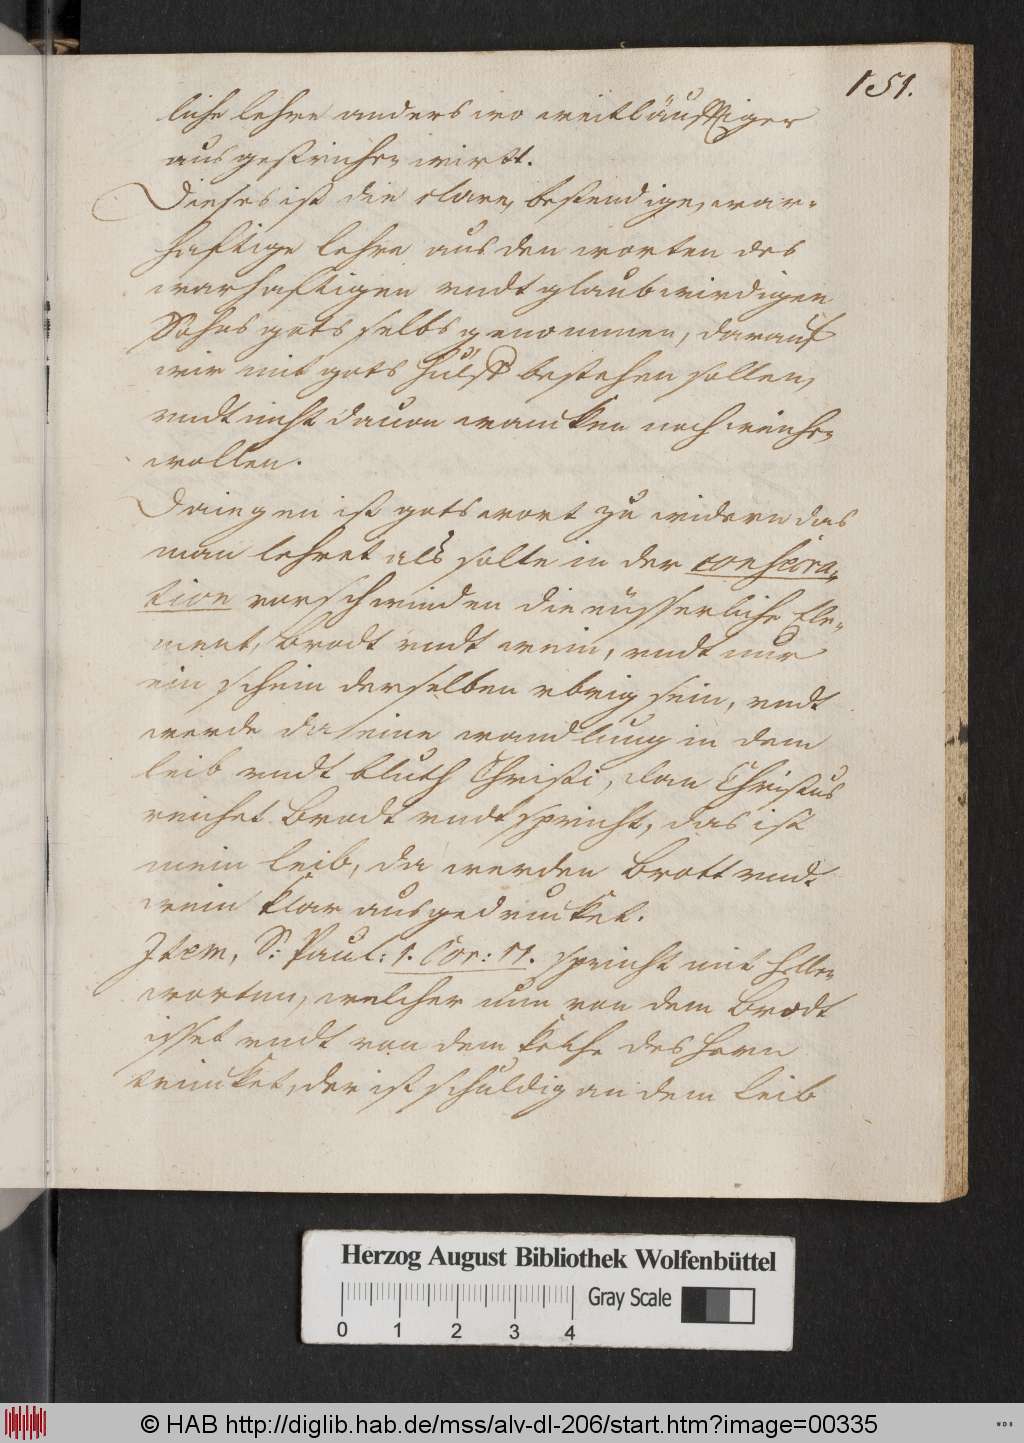 151.
liche lehre anders wo weitläufftiger
ausgestrichen wirtt.
Dieses ist die clare, bestendige, war-
hafftige lehre aus den worten des
warhafftigen vndt glaubwirdigen
Sohns gots selbs genommen, darauf
wir mit gots hülff bestehen sollen,
vndt nicht dauon wancken noch weichen
wollen.
Daiegen ist gots wort zu widern das
man lehret als solte in der consecra-
tion vorschwinden die eüsserliche Ele-
ment, Brodt vndt wein, vndt nur
ein schein derselben vbrig sein, vndt
werde da eine wandlung in dem
leib vndt bluth Christi, dan Christus
reichet Brodt vndt spricht, das ist
mein leib, da werden Brott vndt
wein klar ausgedrucket.
Item, S: Paul: 1. Cor: 11. spricht mit hellen
worten, welcher nun von dem Brodt
isset vndt von dem kelche des hern
trincket, der ist schuldig an dem leib
Herzog August Bibliothek Wolfenbüttel
Gray Scale
0 1 2 3 4
© HAB http://diglib.hab.de/mss/alv-dl-206/start.htm?image=00335
WDB